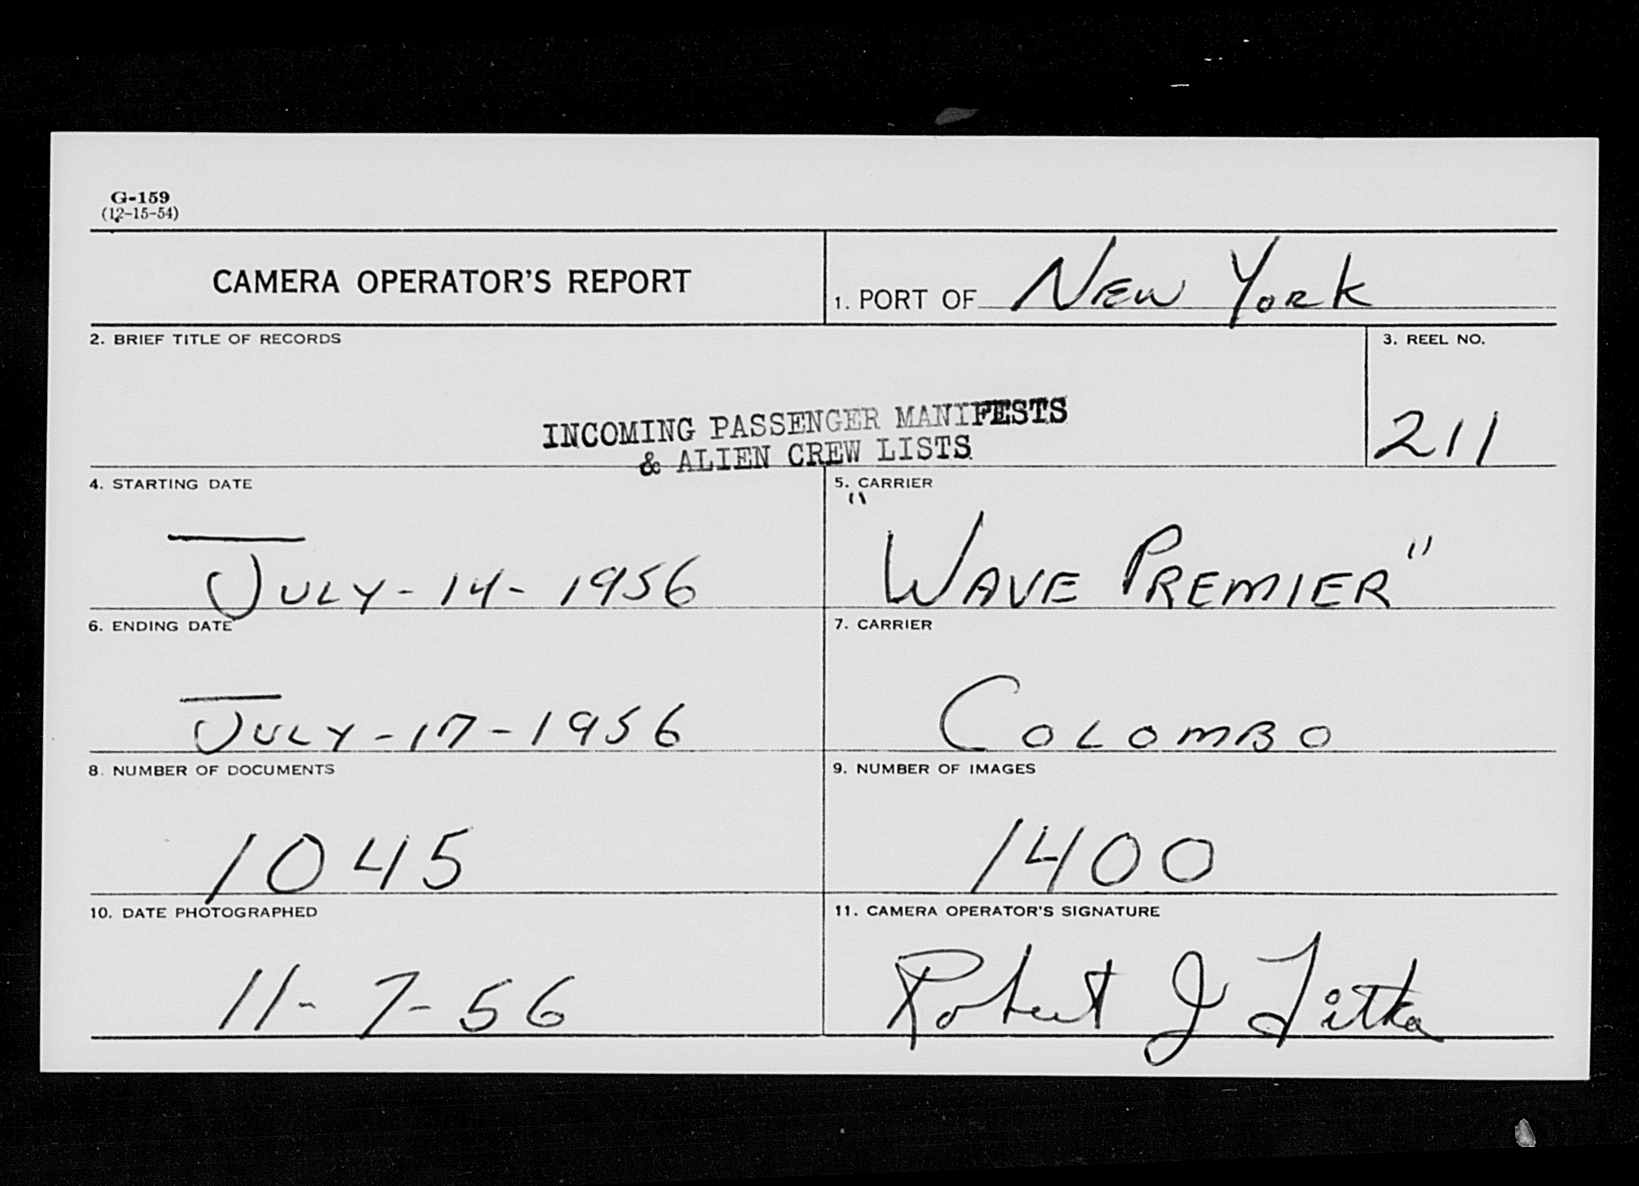 G-159
(12-15-54)
CAMERA OPERATOR'S REPORT
1. PORT OF New York
2. BRIEF TITLE OF RECORDS
3. REEL NO.
INCOMING PASSENGER MANIFESTS
& ALIEN CREW LISTS
211
4. STARTING DATE
5. CARRIER
JULY-14-1956
"WAVE PREMIER"
6. ENDING DATE
7. CARRIER
JULY-17-1956
COLOMBO
8. NUMBER OF DOCUMENTS
9. NUMBER OF IMAGES
1045
1400
10. DATE PHOTOGRAPHED
11. CAMERA OPERATOR'S SIGNATURE
11-7-56
Robert J